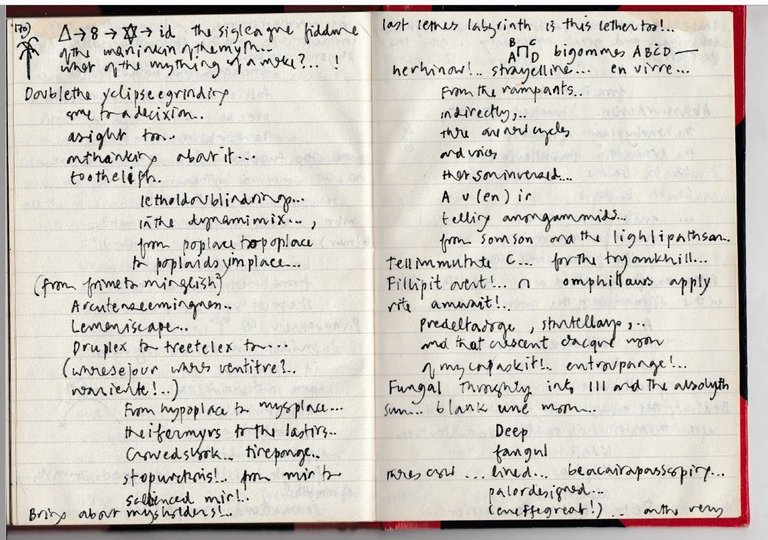 170)
△ → 8 → ✡ → id the sigleagne fiddure
of the maninkin of the myth...
what of the mything of a make?... !
Doublethe yclipseegrindixy
some to a decixion..
asright too..
onthankixy about it...
toothelight.
letholdoublindrings...
in the dynamimix... ,
from poplace to popoplace
to poplaidsyinplace...
(from frimeto minglish?)
Arcuteseemingness..
Lemoniscape..
Druplex to treetelex to...
(waresejour wares ventitre?..
wariente!..)
From hypoplace to mysplace...
theifermyrs to the lastirs..
Curvedshook.. tireponge..
stopunctions!.. from mir to
scienced mir!..
Brixs about mysholders!..
last lethes labyrinth is this lether too!..
B C
A ⊓ D bigommes ABCD —
herhinow!.. strayelline... en virre...
From the rampants..
indirectly,..
there are and cycles
and voices
thersoninversed...
A v (en) ir
telling amongammids...
from somson and the lighlipathson.
Tellimmutate C... for the tryamkhill...
Fillipit overt!.. ∩ omphillaws apply
rite amwait!..
Predeltadroge , startellays ,..
and that crescent clacque moon
of my capaskit!.. entroupange!...
Fungal Throughty into III and the absolyth
sun... blank une moon...
Deep
fangul
mares cow ... lined... beacairapasscopixy...
palordesigned...
(eneffegreat!) .. on the very